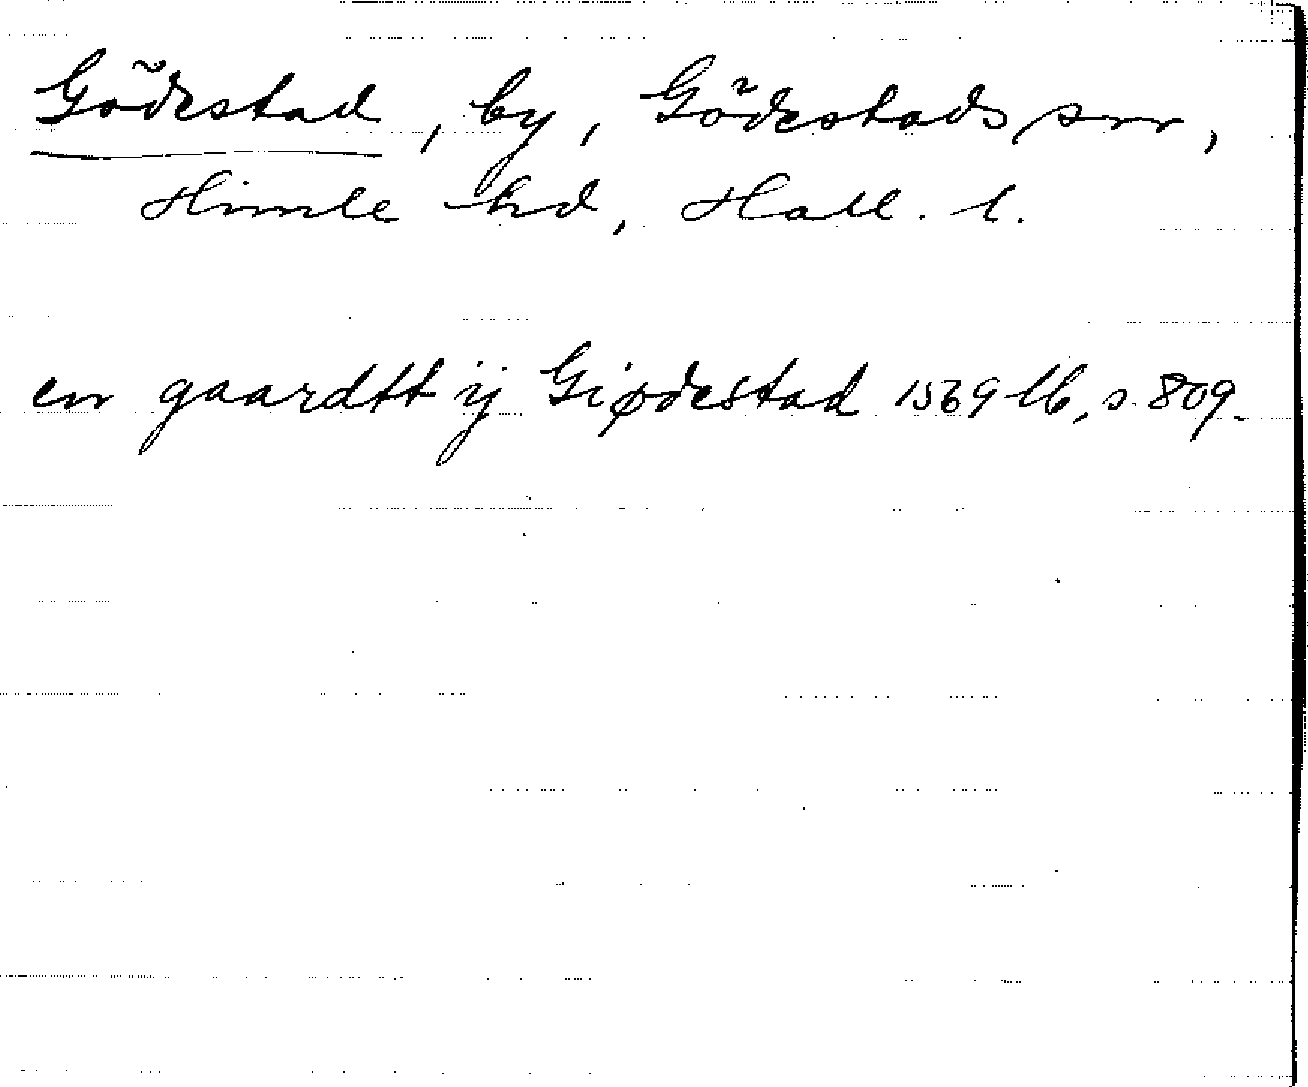 Gödestad, by, Gödestads snr,
Himle hd, Hall. l.
en gaardtt ij Giødestad 1569 lb, s. 809.